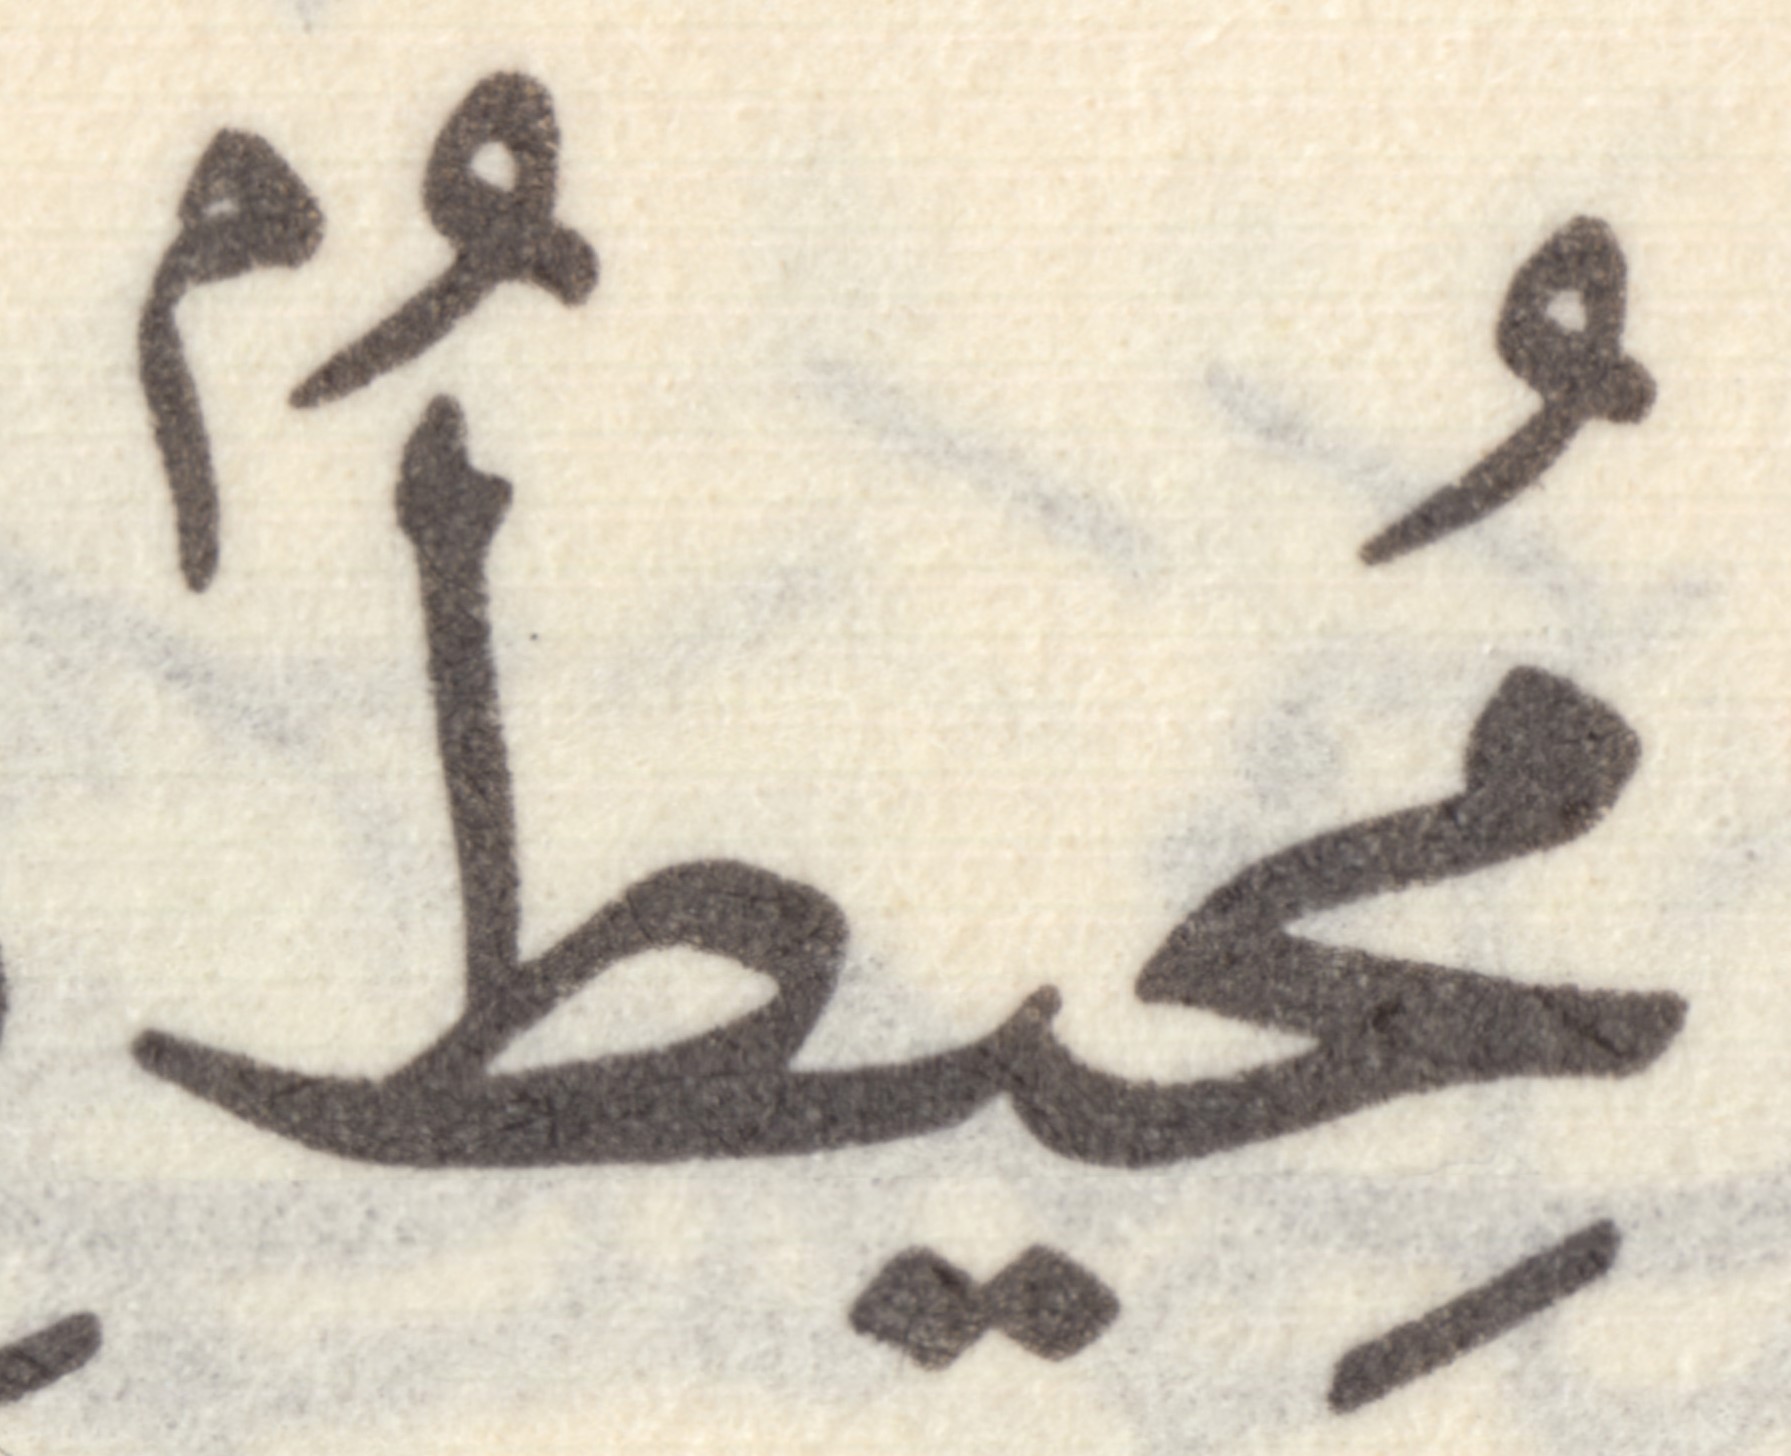 مُحِيطٌۢ